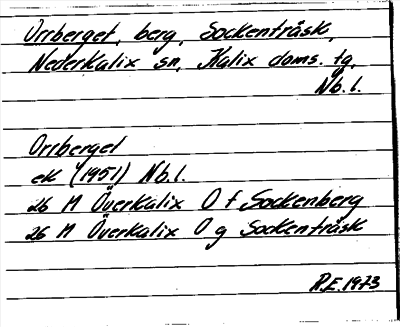 Orrberget, berg, Sockenträsk,
Nederkalix sn, Kalix doms. tg,
Nb. l.
Orrberget
ek (1951) Nb.l.
26 M Överkalix O f Sockenberg
26 M Överkalix O g Sockenträsk
R.E. 1973